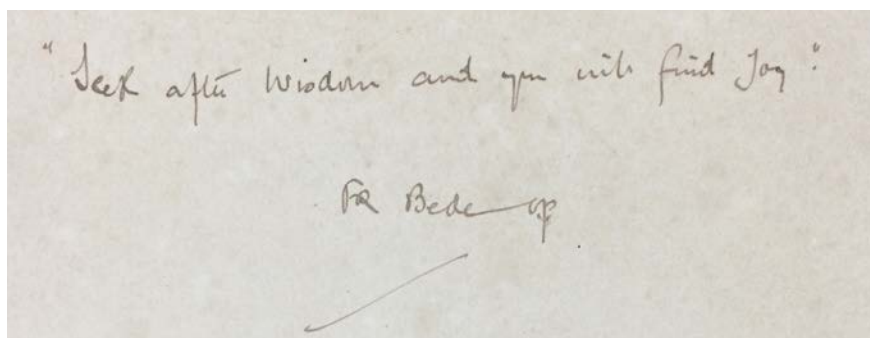 "Seek after Wisdom and you will find Joy".
Fr Bede op